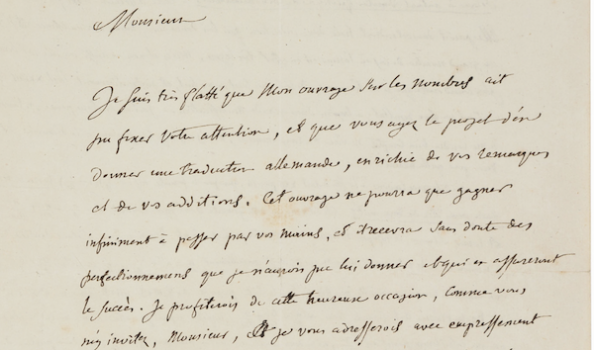 Monsieur
Je suis très flatté que Mon ouvrage sur les nombres ait
pu fixer votre attention, et que vous ayez le projet d'en
donner une traduction allemande, enrichie de vos remarques
et de vos additions. Cet ouvrage ne pourra que gagner
infiniment à passer par vos mains, et recevra sans doute des
perfectionnemens que je n'aurois pu lui donner et qui en assureront
le succès. Je profiterois de cette heureuse occasion, comme vous
m'y invitez, Monsieur, et je vous adresserois avec empressement